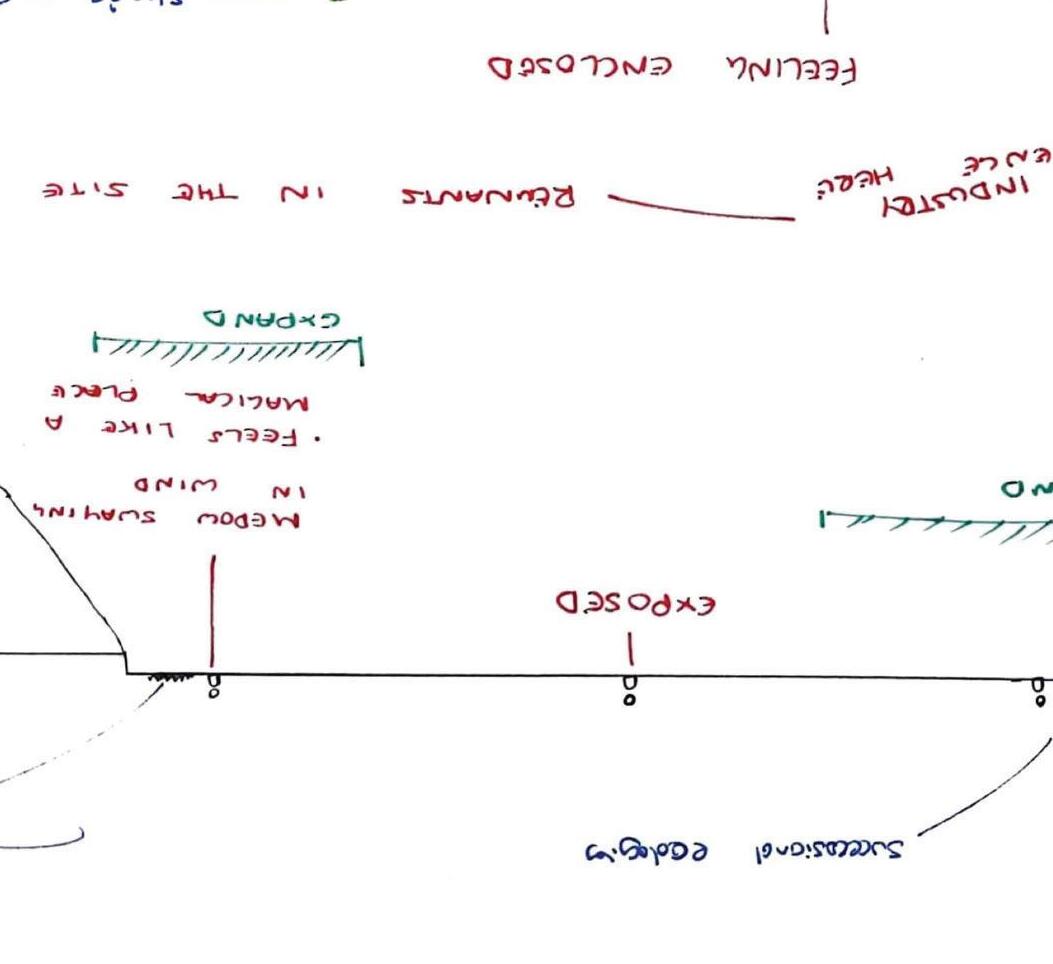 Succesional ecologies
EXPOSED
MEDOW SWAYING
IN WIND
ND
· FEELS LIKE A
MAGICAL PLACE
EXPAND
INDUSTRY
ENCE HERE
REMNANTS IN THE SITE
FEELING ENCLOSED